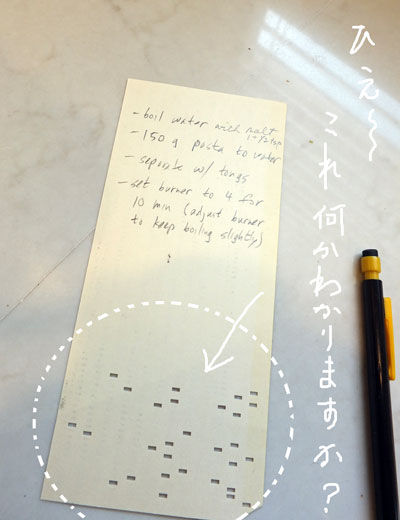 ひえ〜
これ何かわかりますか?
- boil water with salt
1-1/2 tsp
- 150 g pasta to water
- separate w/ tongs
- set burner to 4 for
10 min (adjust burner
to keep boiling slightly)